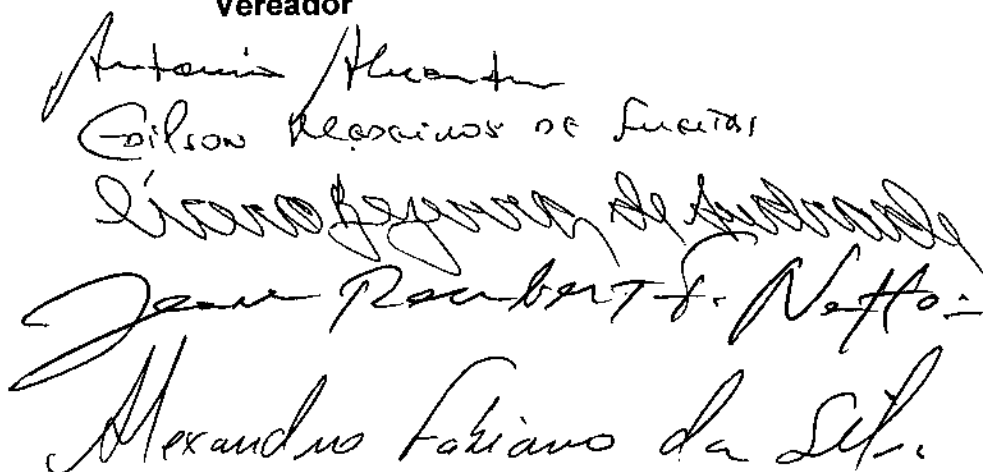 Vereador
Antonio
Edilson de Freitas
Cícero Bezerra de Andrade
Jean Roubert F. Netto
Alexandro Fabiano da Silva